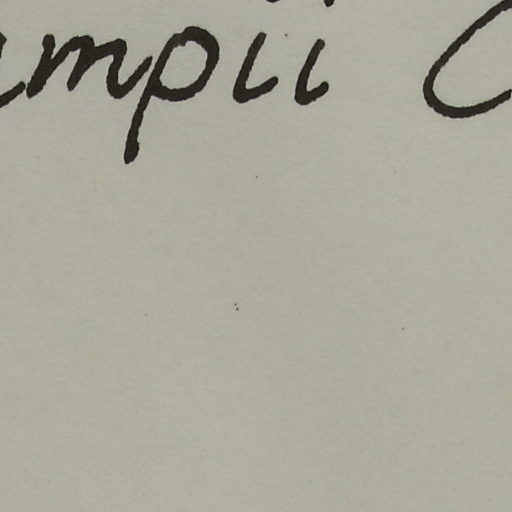 mpii C